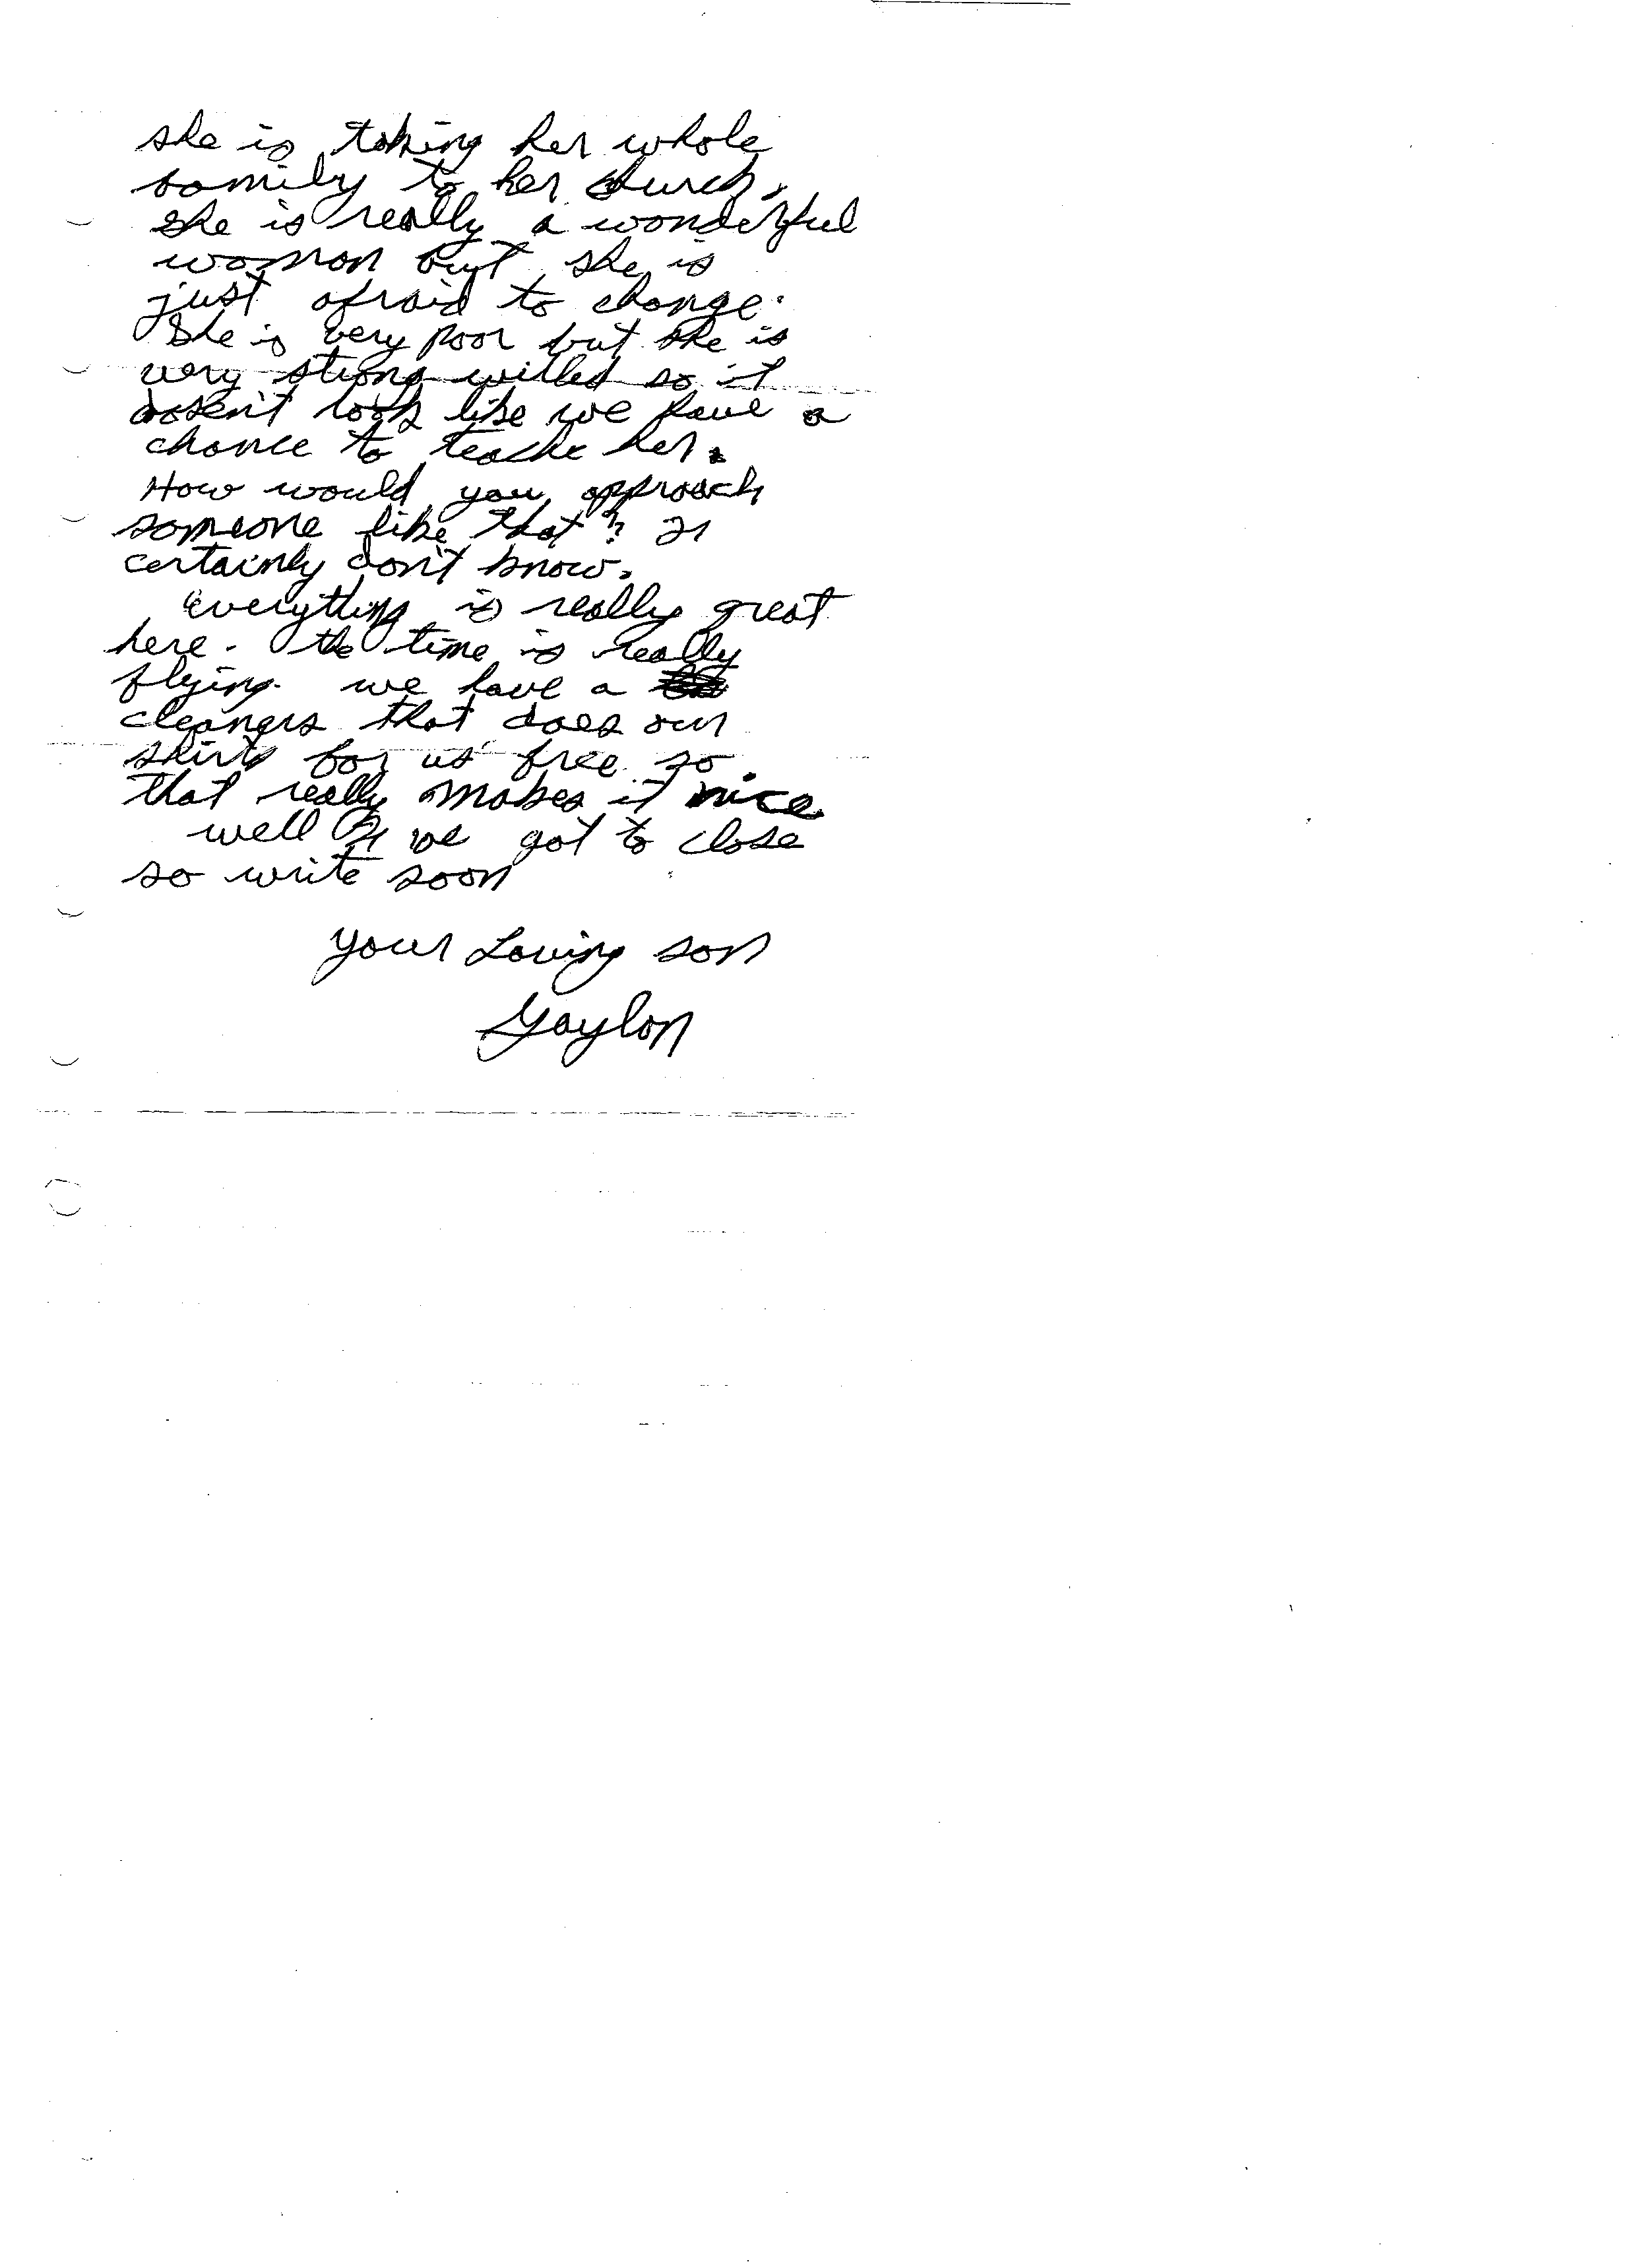 she is taking her whole
family to her church,
she is really a wonderful
woman but she is
just afraid to change.
She is very poor but she is
very strong willed so it
dosen't look like we have a
chance to teache her.
How would you approach
someone like that? I
certainly don't know.
everything is really great
here. the time is really
flying. we have a
cleaners that does our
shirts for us free so
that really makes it nice
well I ve got to close
so write soon
your Loving son
Gaylon